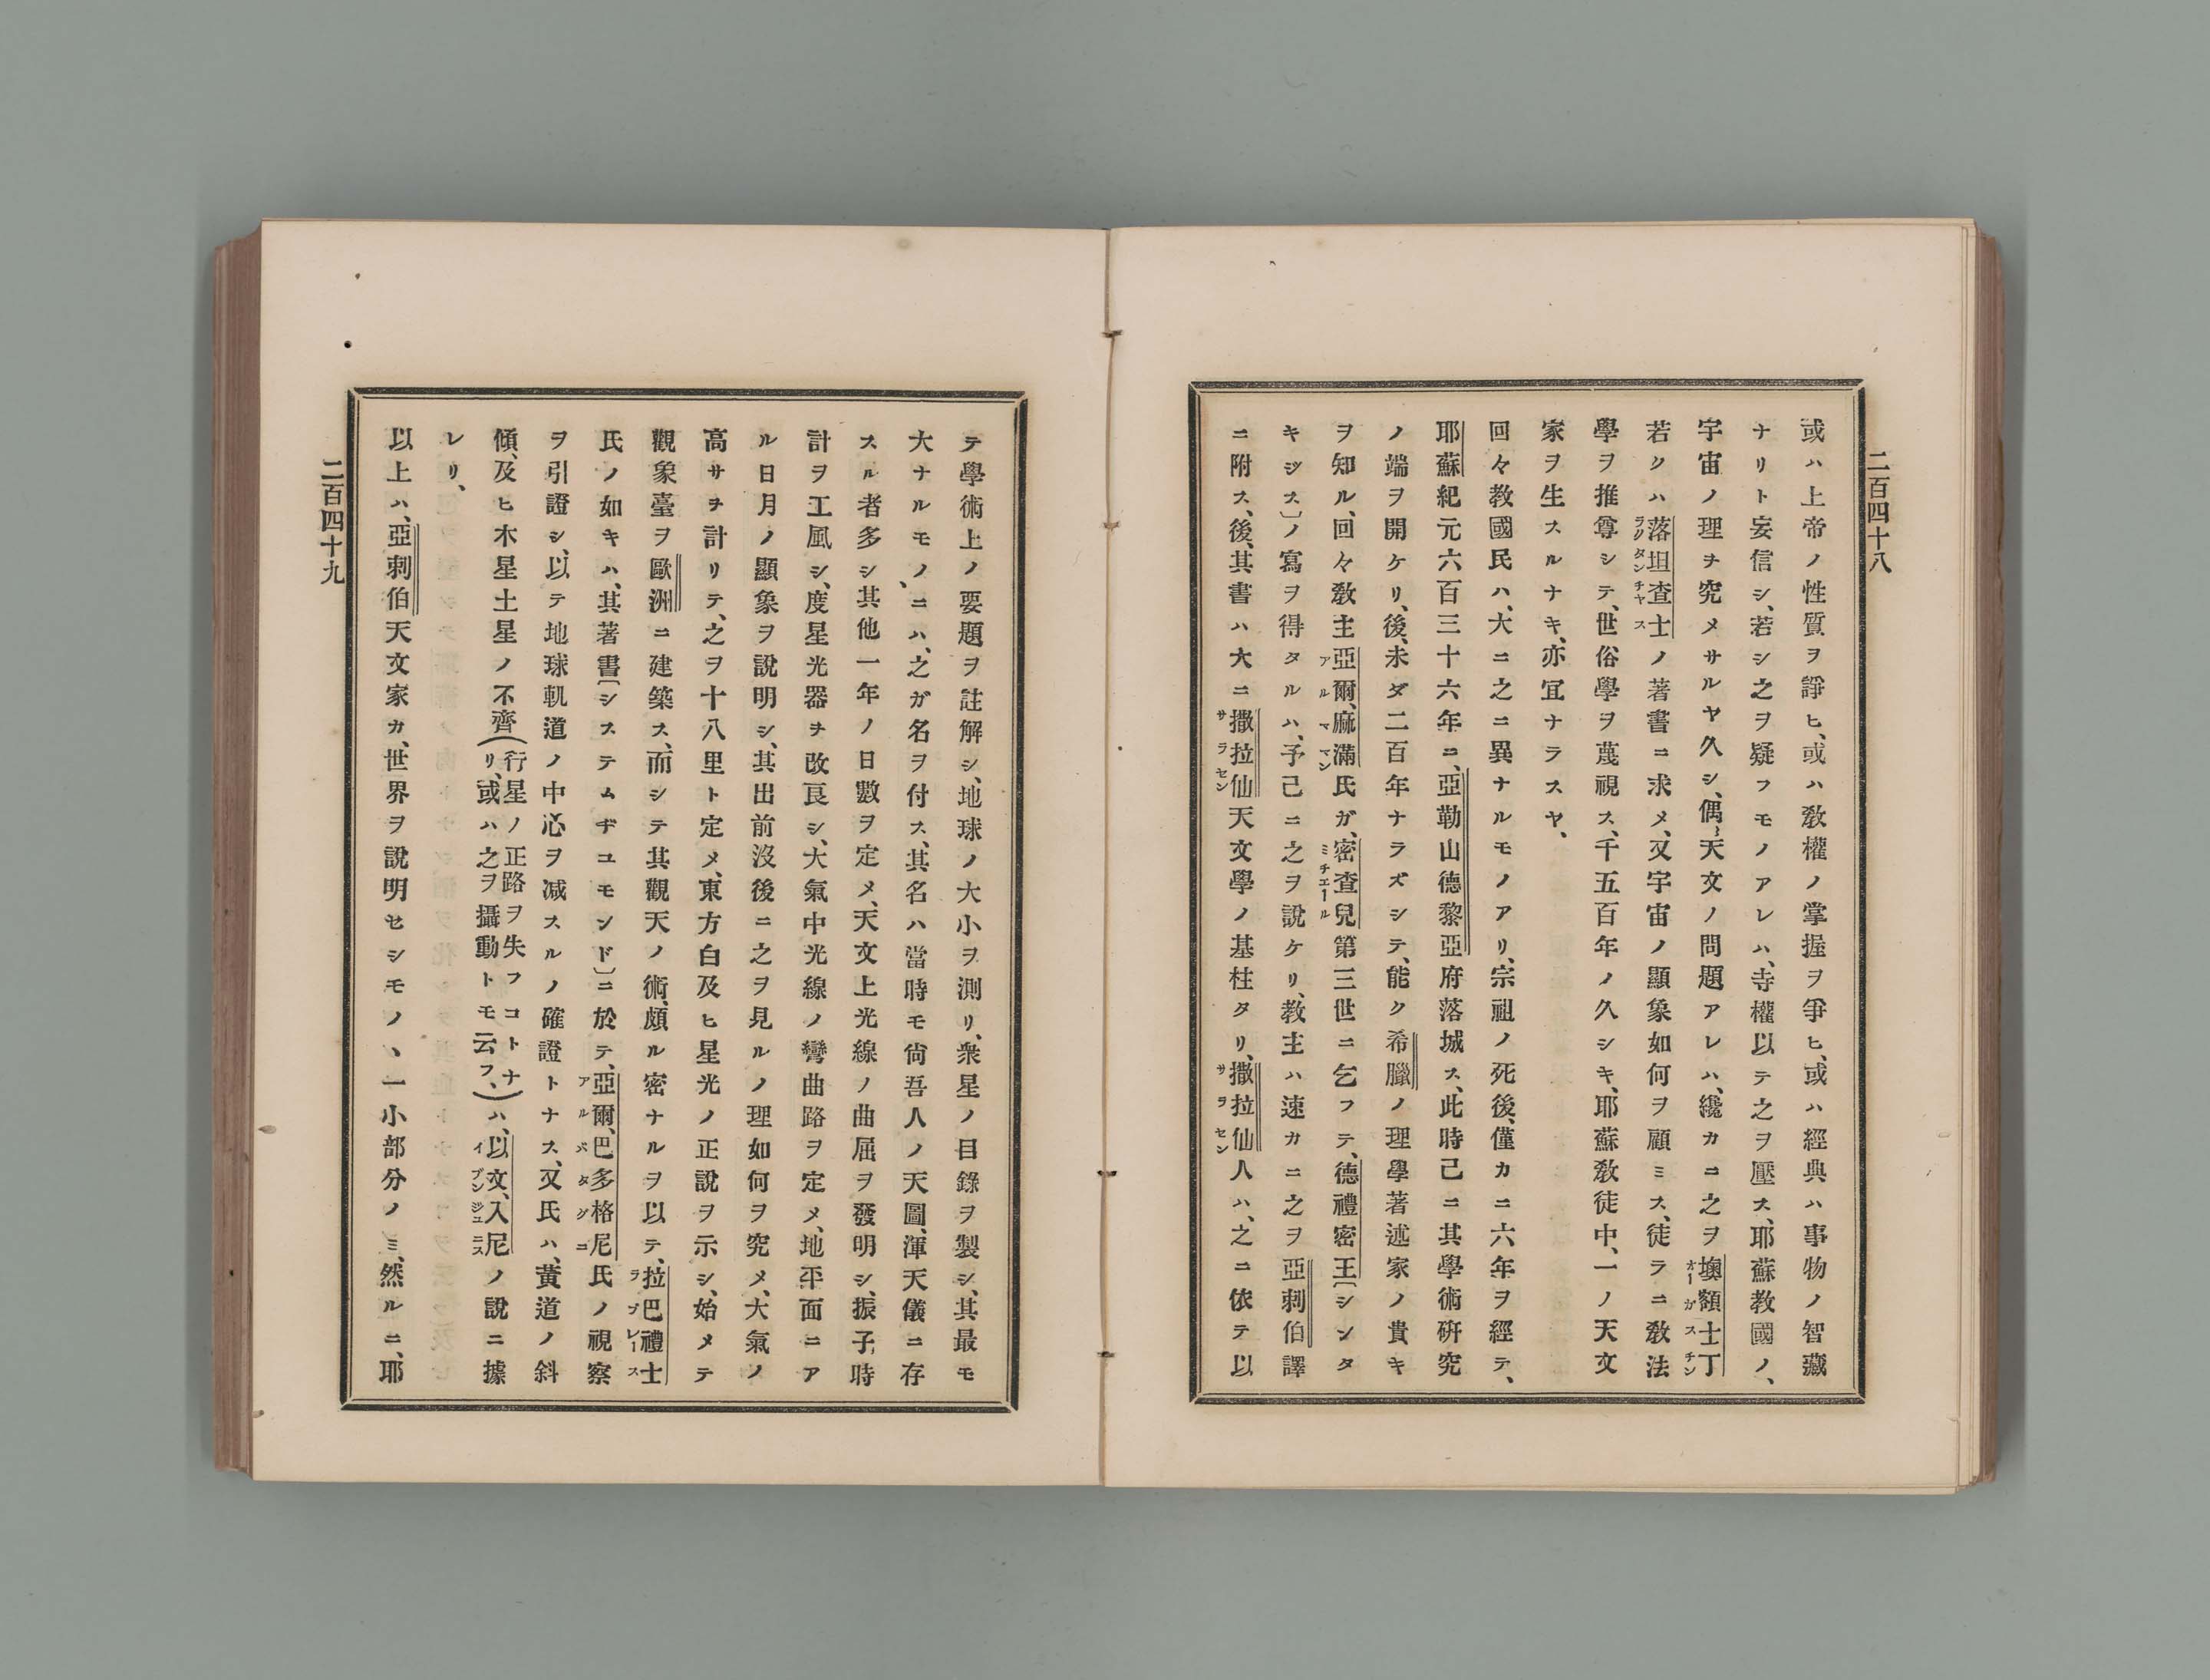 二百四十八
或ハ上帝ノ性質ヲ諍ヒ、或ハ敎權ノ掌握ヲ爭ヒ、或ハ經典ハ事物ノ智藏
ナリト妄信シ、若シ之ヲ疑フモノアレハ、寺權以テ之ヲ壓ス、耶蘇敎國ノ、
宇宙ノ理ヲ究メサルヤ久シ、偶天文ノ問題アレハ、纔カニ之ヲ墺額士丁
オーガスチン
若クハ落坦査士ノ著書ニ求メ、又宇宙ノ顯象如何ヲ顧ミス、徒ラニ敎法
ラクタンチヤス
學ヲ推尊シテ、世俗學ヲ蔑視ス、千五百年ノ久シキ、耶蘇敎徒中、一ノ天文
家ヲ生スルナキ、亦宜ナラスヤ、
回々敎國民ハ、大ニ之ニ異ナルモノアリ、宗祖ノ死後、僅カニ六年ヲ經テ、
耶蘇紀元六百三十六年ニ、亞勒山德黎亞府落城ス、此時己ニ其學術硏究
ノ端ヲ開ケリ、後、未ダ二百年ナラズシテ、能ク希臘ノ理學著述家ノ貴キ
ヲ知ル、回々敎主亞爾、麻滿氏ガ、密査兒第三世ニ乞フテ、德禮密王〔シンタ
アルママン
ミチエール
キジス〕ノ寫ヲ得タルハ、予己ニ之ヲ說ケリ、敎主ハ速カニ之ヲ亞剌伯譯
ニ附ス、後、其書ハ大ニ撒拉仙天文學ノ基柱タリ、撒拉仙人ハ、之ニ依テ以
サラセン
サラセン
テ學術上ノ要題ヲ註解シ、地球ノ大小ヲ測リ、衆星ノ目錄ヲ製シ、其最モ
大ナルモノ、ニハ、之ガ名ヲ付ス、其名ハ當時モ尙吾人ノ天圖、渾天儀ニ存
スル者多シ其他一年ノ日數ヲ定メ、天文上光線ノ曲屈ヲ發明シ、振子時
計ヲ工風シ、度星光器ヲ改良シ、大氣中光線ノ彎曲路ヲ定メ、地平面ニア
ル日月ノ顯象ヲ說明シ、其出前沒後ニ之ヲ見ルノ理如何ヲ究メ、大氣ノ
高サヲ計リテ、之ヲ十八里ト定メ、東方白及ヒ星光ノ正說ヲ示シ、始メテ
觀象臺ヲ歐洲ニ建築ス、而シテ其觀天ノ術、頗ル密ナルヲ以テ、拉巴禮士
ラプレース
氏ノ如キハ、其著書〔システムヂユモンド〕ニ於テ、亞爾、巴多格尼氏ノ視察
アルバタグニ
ヲ引證シ、以テ地球軌道ノ中心ヲ减スルノ確證トナス、又氏ハ、黃道ノ斜
傾、及ヒ木星土星ノ不齊(行星ノ正路ヲ失フコトナ
リ、或ハ之ヲ攝動トモ云フ、)ハ、以文、入尼ノ說ニ據
イブンジユニス
レリ、
以上ハ、亞剌伯天文家カ、世界ヲ說明セシモノヽ一小部分ノミ、然ルニ、耶
二百四十九